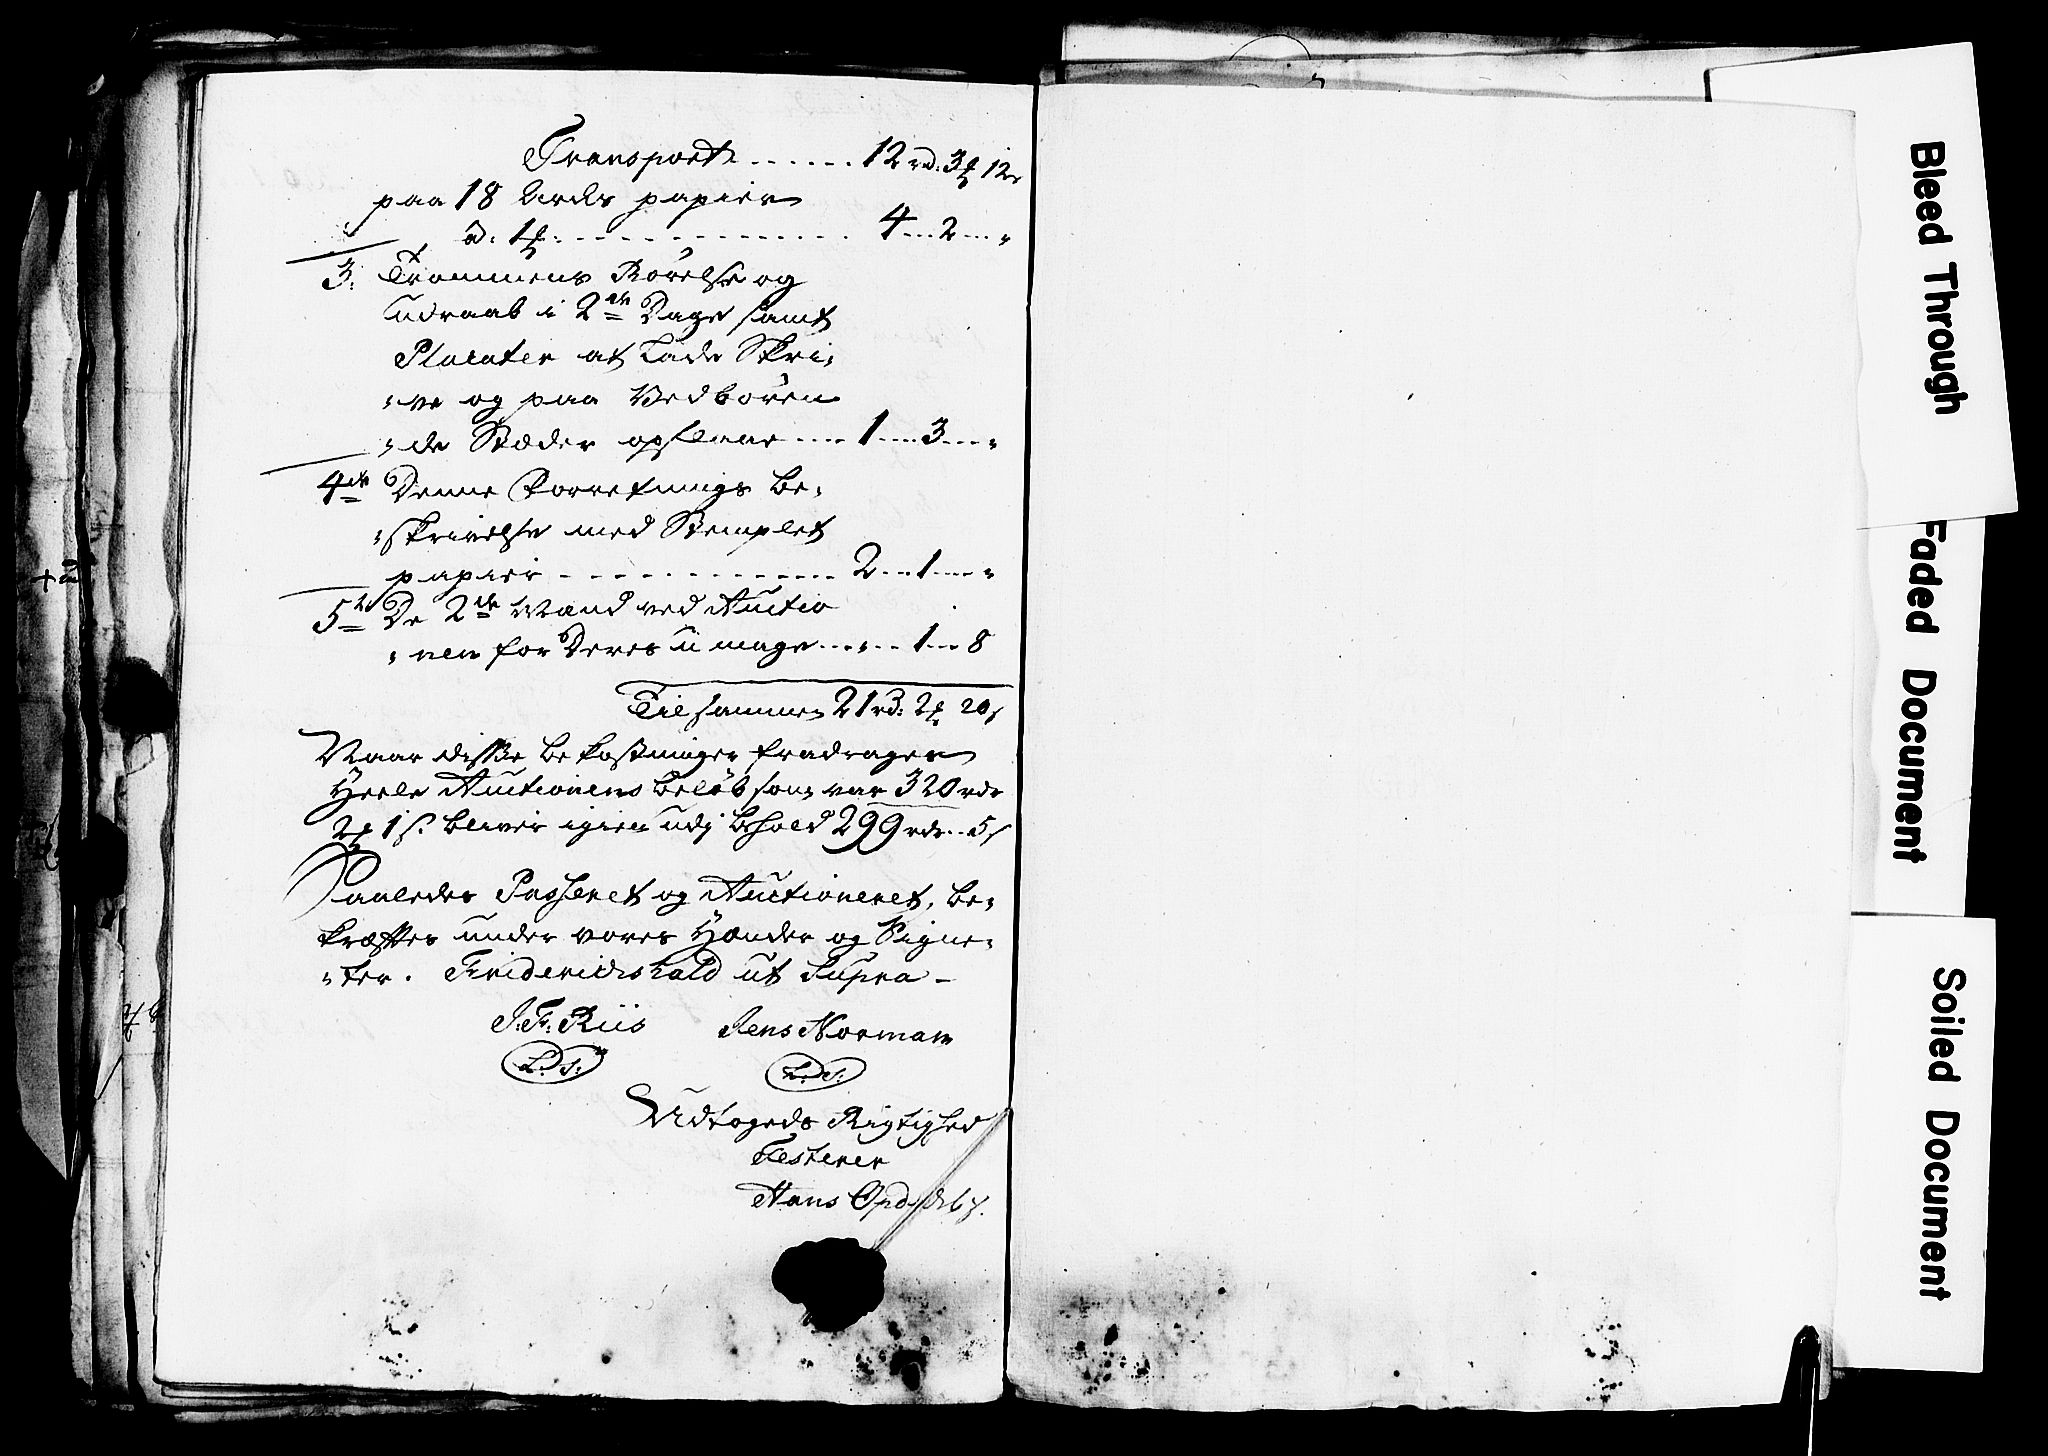 Transport ...... 12 rd. 3 ₰ 12 s
paa 18 Arks papier
a. 1 ₰: - - - - - - - - - - 4 - - 2 - - "
3. Trommens Rörelse og
Udraab i 2de Dage samt
Placater at lade Skri,
,ve og paa Vedbören
,de Stæder opslaae .... 1 .... 3 .... "
4de Denne Forretnings be,
,skrivelse med Stemplet
papier - - - - - - - - - - 2 ... 1 ... "
5te De 2de Mænd ved Auctio
,nen for Deres umage ... " .. 1 ... 8
Tilsammen 21 rd: 2 ₰ 20 s
Naar disse bekostninger fradrages
Heele Auctionens beløb som var 320 rdr
2 ₰ 1 s. bliver igien udj behold 299 rdr .. 5 s
Saaledes Passeret og Auctioneret, be,
kræftes under vores Hænder og Signe,
,ter. Friderichshald ut Supra -
J: F: Riis Jens Norman
L. S: L. S:
Udtogeds Rigtighed
Testerer
Hans
Bleed Through
Faded Document
Soiled Document